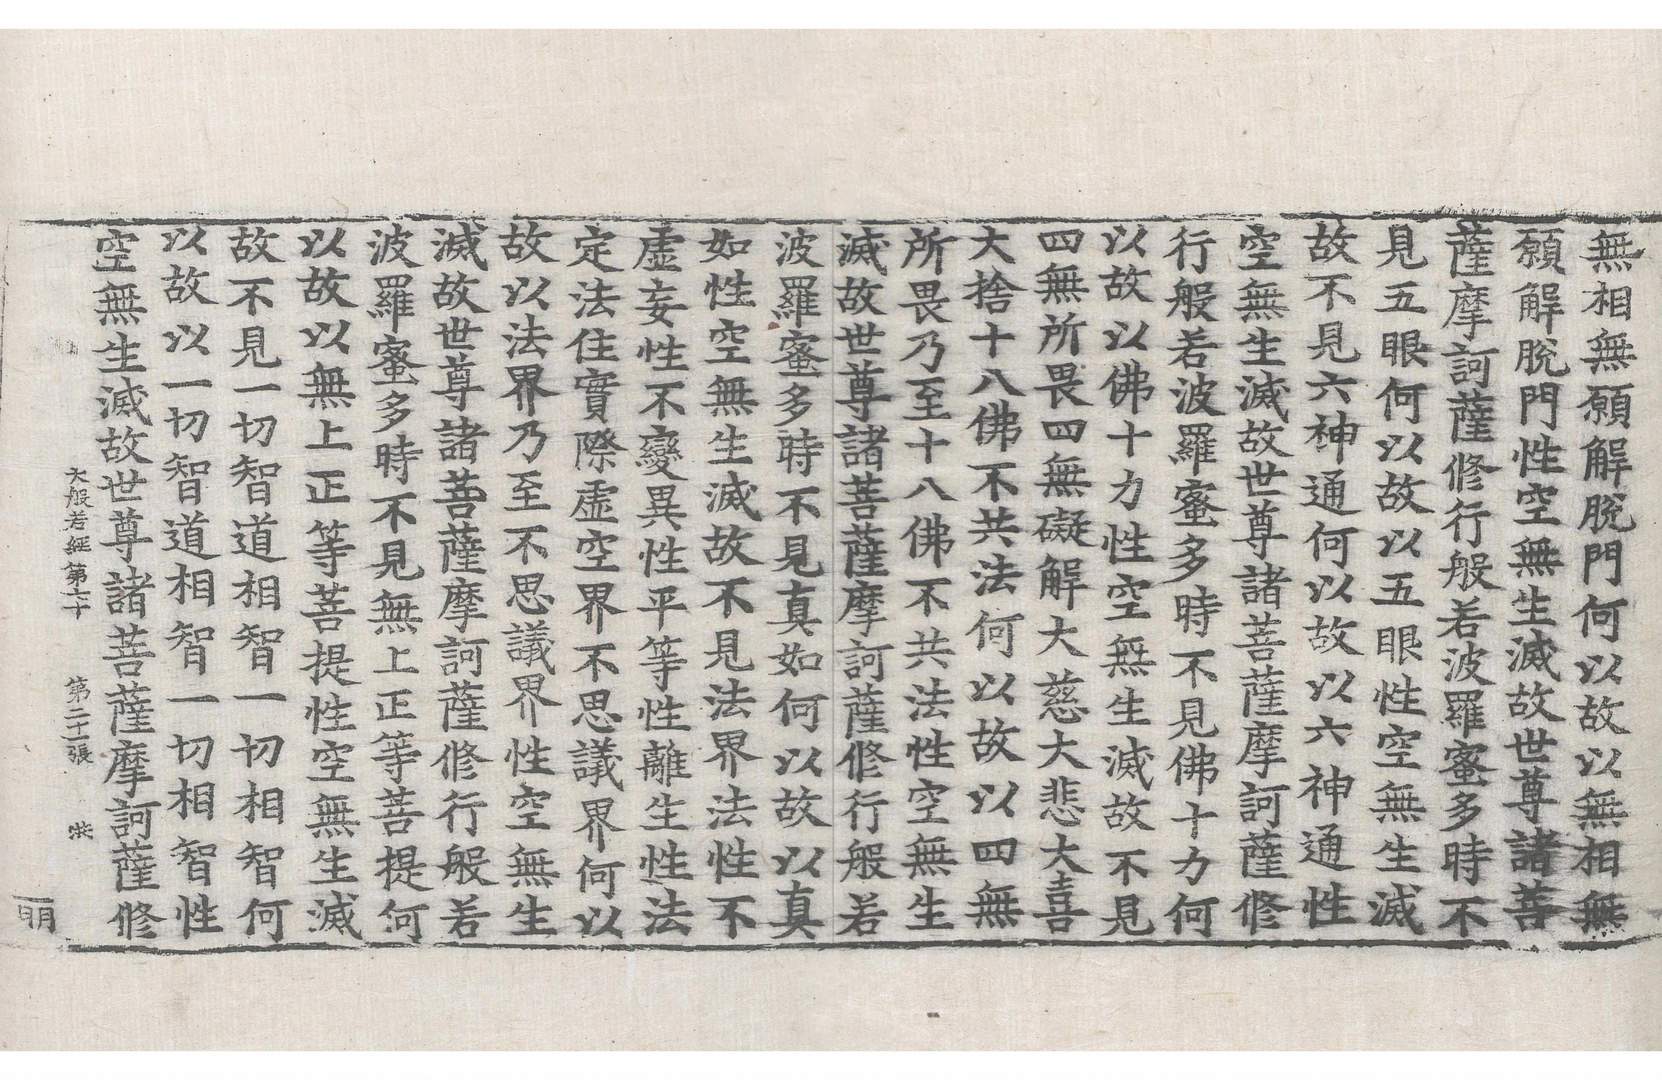 無相無願解脫門何以故以無相無
願解脫門性空無生滅故世尊諸菩
薩摩訶薩修行般若波羅蜜多時不
見五眼何以故以五眼性空無生滅
故不見六神通何以故以六神通性
空無生滅故世尊諸菩薩摩訶薩修
行般若波羅蜜多時不見佛十力何
以故以佛十力性空無生滅故不見
四無所畏四無礙解大慈大悲大喜
大捨十八佛不共法何以故以四無
所畏乃至十八佛不共法性空無生
滅故世尊諸菩薩摩訶薩修行般若
波羅蜜多時不見真如何以故以真
如性空無生滅故不見法界法性不
虛妄性不變異性平等性離生性法
定法住實際虛空界不思議界何以
故以法界乃至不思議界性空無生
滅故世尊諸菩薩摩訶薩修行般若
波羅蜜多時不見無上正等菩提何
以故以無上正等菩提性空無生滅
故不見一切智道相智一切相智何
以故以一切智道相智一切相智性
空無生滅故世尊諸菩薩摩訶薩修
大般若經第六十 第二十一張